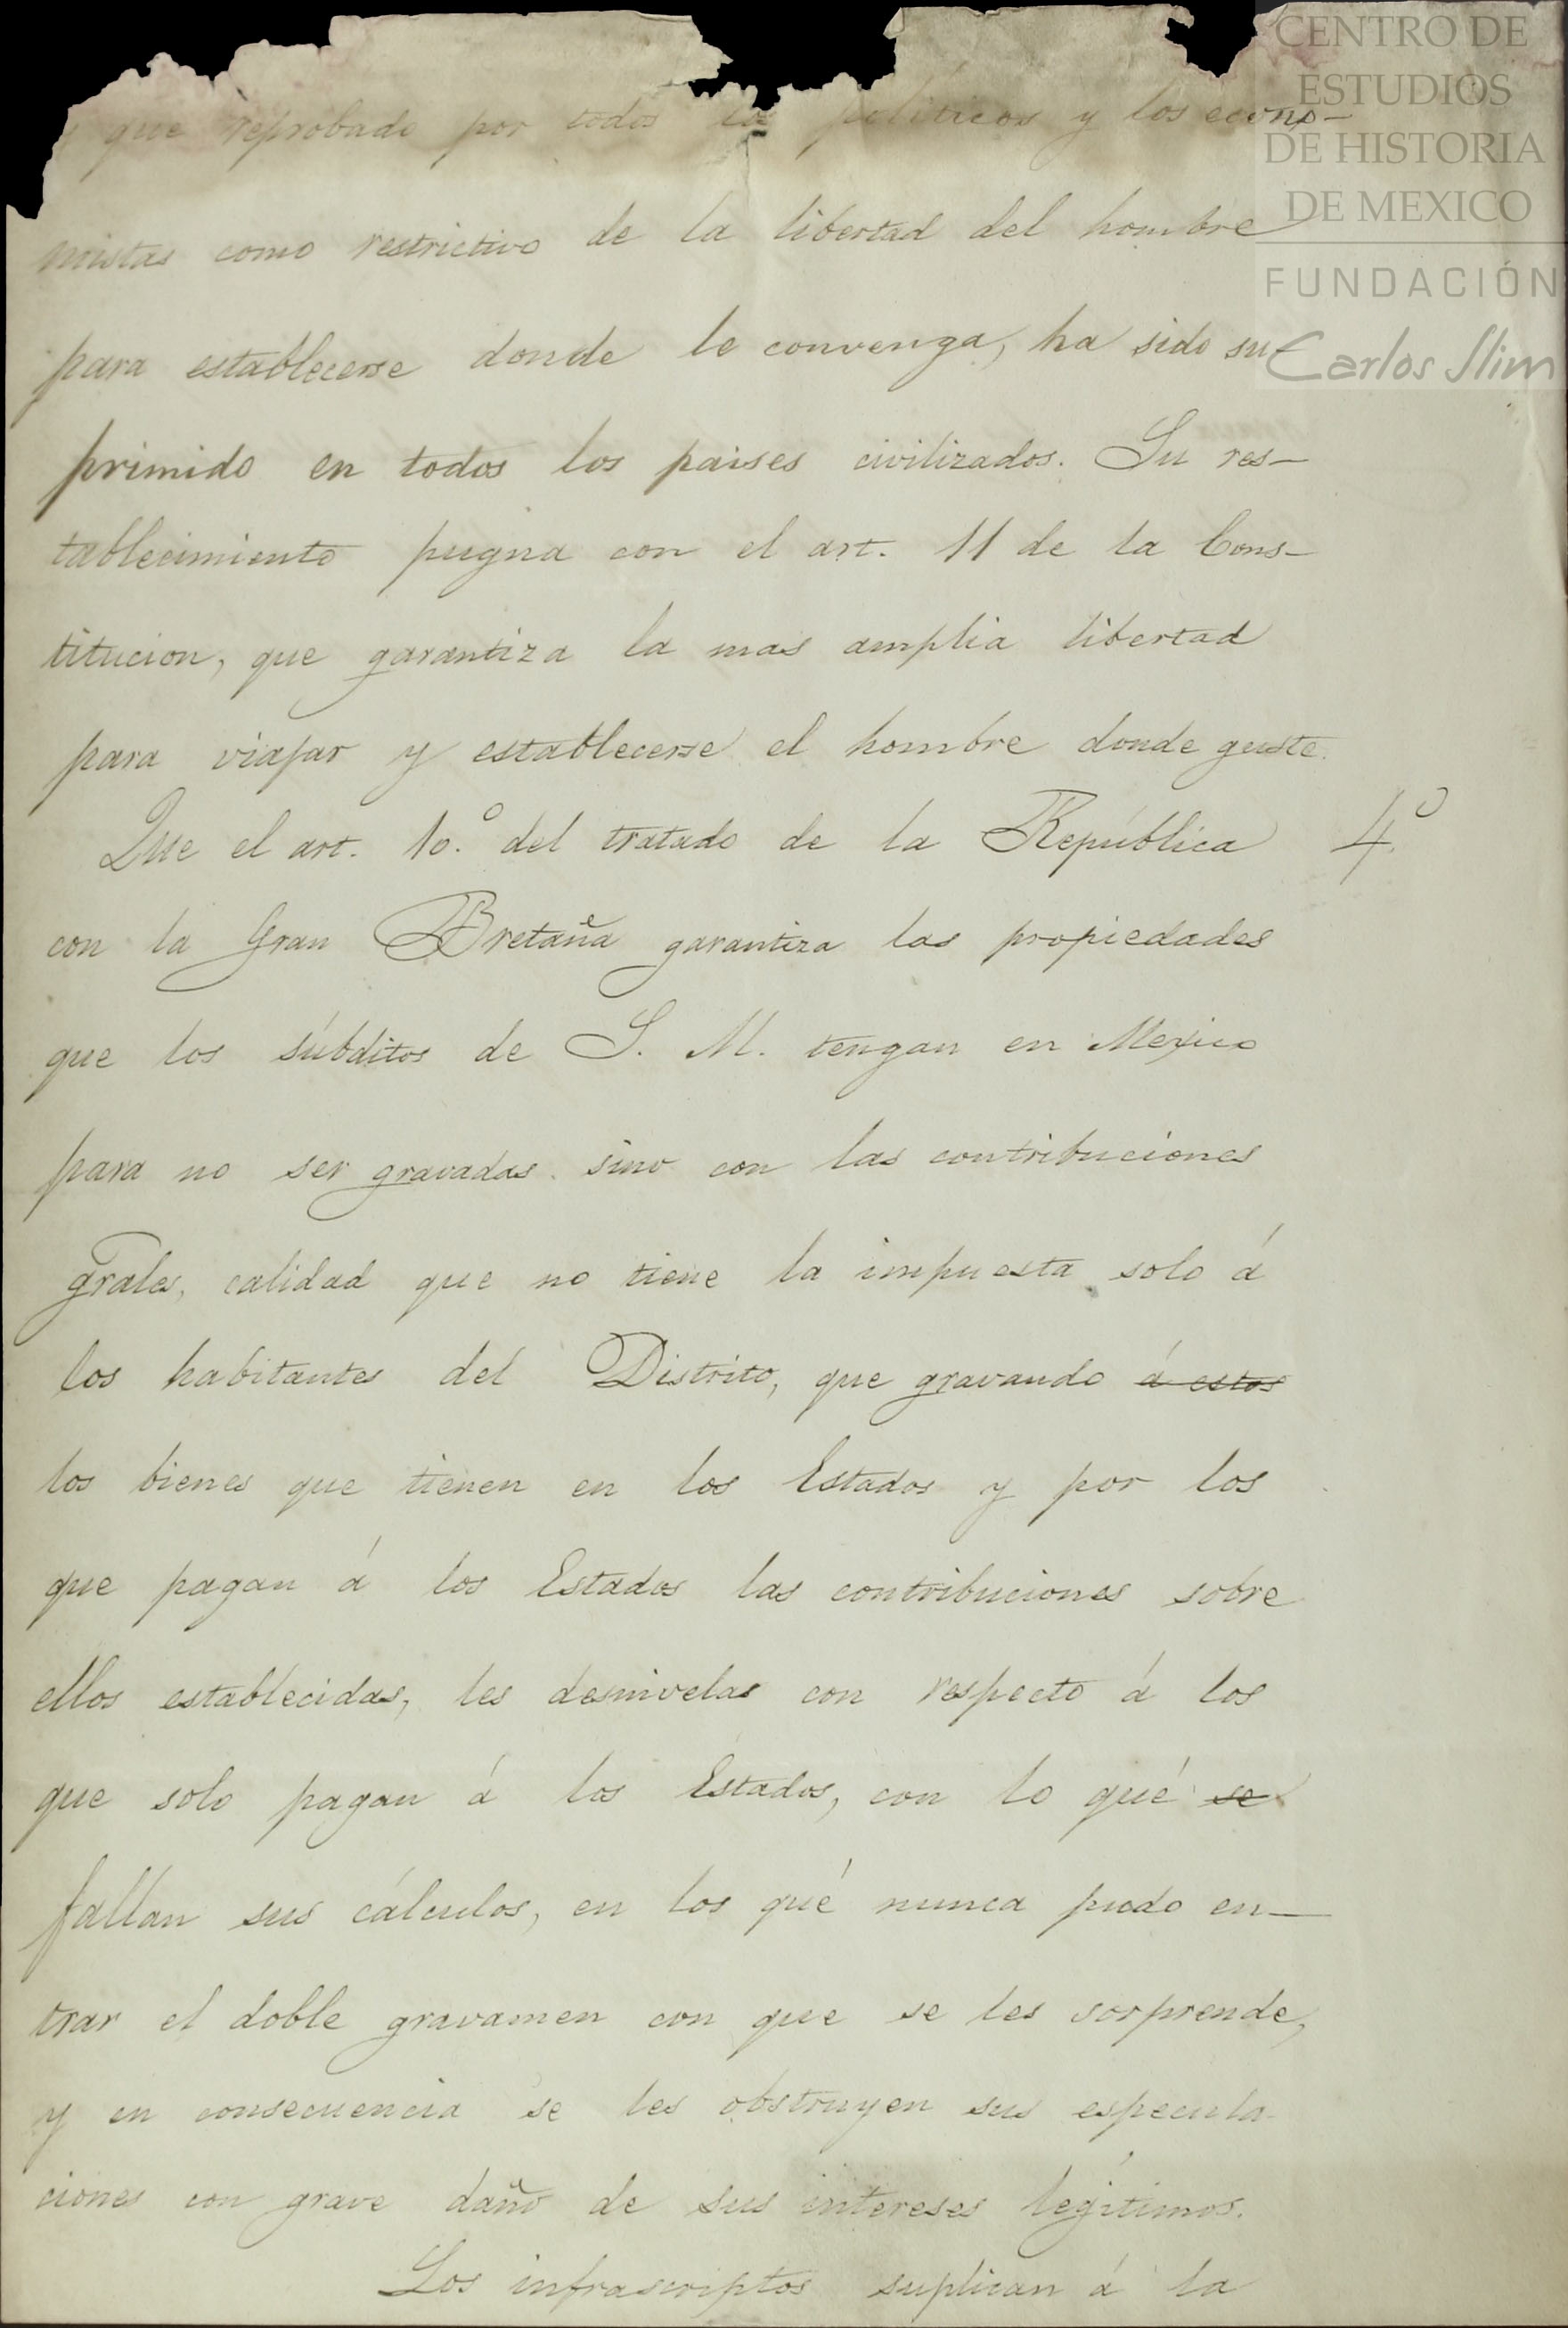 que reprobado por todos los politicos y los econo-
mistas como restrictivo de la libertad del hombre
para establecerse donde le convenga, ha sido su-
primido en todos los paises civilizados. Su res-
tablecimiento pugna con el art. 11 de la Cons-
titucion, que garantiza la mas amplia libertad
para viajar y establecerse el hombre donde guste.
Que el art. 10.º del tratado de la República 4.º
con la Gran Bretaña garantiza las propiedades
que los súbditos de S. M. tengan en Mexico
para no ser gravadas sino con las contribuciones
grales, calidad que no tiene la impuesta solo á
los habitantes del Distrito, que gravando á estos
los bienes que tienen en los Estados y por los
que pagan á los Estados las contribuciones sobre
ellos establecidas, les desnivelas con respecto á los
que solo pagan á los Estados, con lo qué se
fallan sus cálculos, en los qué nunca pudo en-
trar el doble gravamen con que se les sorprende,
y en consecuencia se les obstruyen sus especula-
ciones con grave daño de sus intereses legítimos.
Los infrascriptos suplican á la
CENTRO DE
ESTUDIOS
DE HISTORIA
DE MEXICO
FUNDACIÓN
Carlos Slim